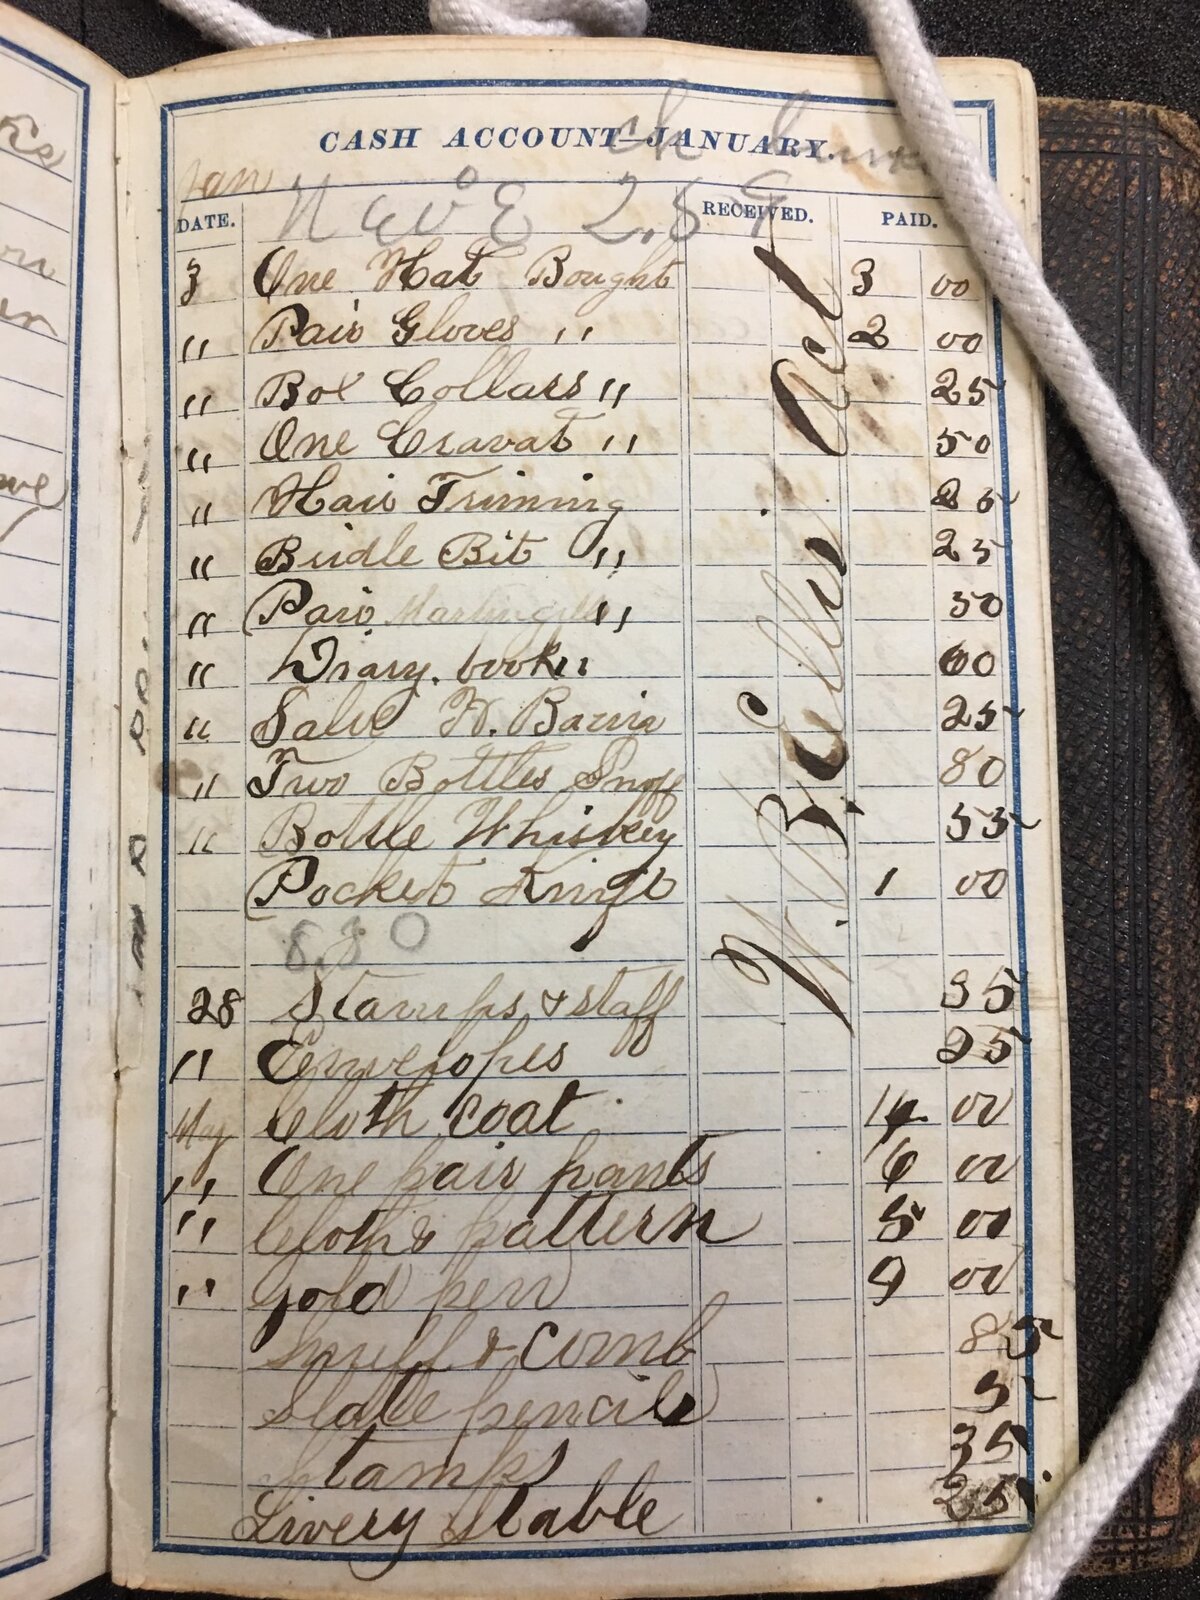 CASH ACCOUNT—JANUARY.
Jan
DATE. RECEIVED. PAID.
3 One Hat Bought 3 00
" Pair Gloves " 2 00
" Box Collars " 25
" One Cravat " 50
" Hair Triming 25
" Bridle Bit " 25
" Pair Martingills " 50
" Diary book " 60
" Salve H. Barrir 25
" Two Bottles Snuff 80
" Bottle Whiskey 55
Pocket Knife 1 00
8,80
28 Stamps & staff 35
" Envelopes 25
May Cloth coat 14 00
" One pair pants 6 00
" Cloth & pattern 5 00
" Gold pen 9 00
Snuff & Comb 85
Slate pencils 5
Stamps 35
Livery Stable 25
W. B. Ellis Act